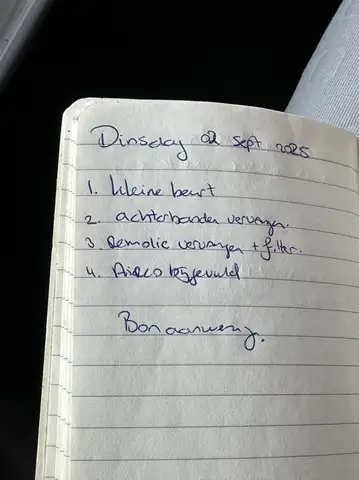 Dinsday 02 sept 2025
1. kleine beurt
2. achterbanden vervangen.
3. Remolie vervangen + filter.
4. Airco bijgevuld
Bon aanwezig.